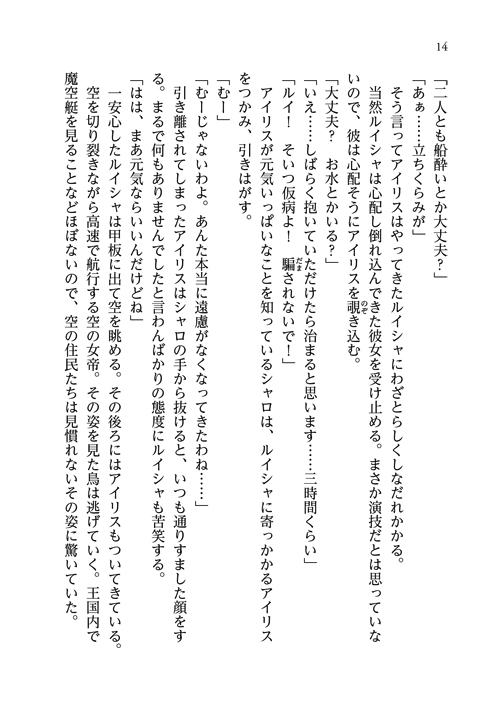 14
「二人とも船酔いとか大丈夫？」
「あぁ……立ちくらみが」
　そう言ってアイリスはやってきたルイシャにわざとらしくしなだれかかる。
　当然ルイシャは心配し倒れ込んできた彼女を受け止める。まさか演技だとは思っていな
いので、彼は心配そうにアイリスを覗き込む。
「大丈夫？　お水とかいる？」
「いえ……しばらく抱いていただけたら治まると思います……三時間くらい」
「ルイ！　そいつ仮病よ！　騙されないで！」
　アイリスが元気いっぱいなことを知っているシャロは、ルイシャに寄っかかるアイリス
をつかみ、引きはがす。
「むー」
「むーじゃないわよ。あんた本当に遠慮がなくなってきたわね……」
　引き離されてしまったアイリスはシャロの手から抜けると、いつも通りすました顔をす
る。まるで何もありませんでしたと言わんばかりの態度にルイシャも苦笑する。
「はは、まあ元気ならいいんだけどね」
　一安心したルイシャは甲板に出て空を眺める。その後ろにはアイリスもついてきている。
　空を切り裂きながら高速で航行する空の女帝。その姿を見た鳥は逃げていく。王国内で
魔空艇を見ることなどほぼないので、空の住民たちは見慣れないその姿に驚いていた。